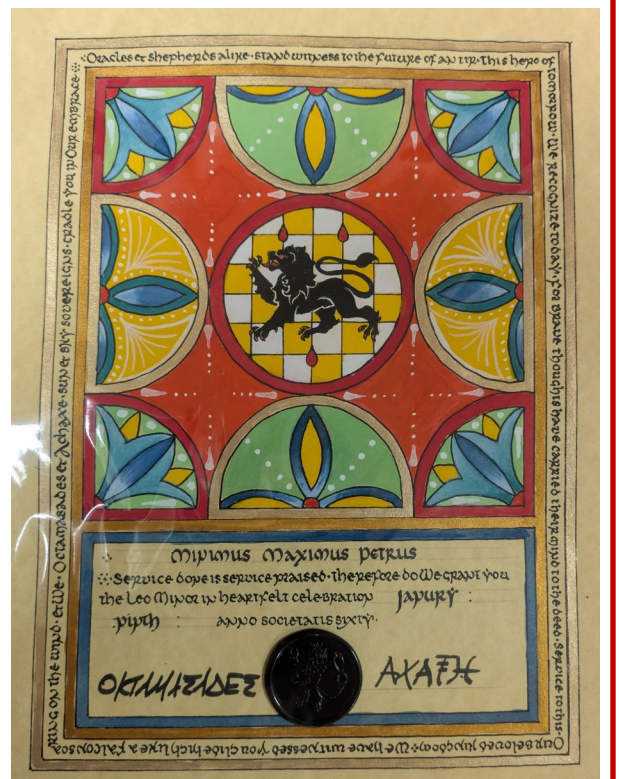 Oracles et shepherds alike · stand witness to the future of an tir · This hero of
tomorrow · We recognize today · For brave thoughts have carried their mind to the deed · Service to this ·
Our beloved kingdom · We have witnessed you glide high like a falcon soa
ring on the wind · et We · Octamasades et Achaxe · sun et sky sovereigns · cradle you in Our embrace
Minimus Maximus Petrus
Service done is service praised · therefore do We grant you
the Leo Minor in heartfelt celebration Janury :
fifth : anno societatis sixty ·
ΟΚΤΑΜΑΣΑΔΕΣ ΑΧΑΞΗ